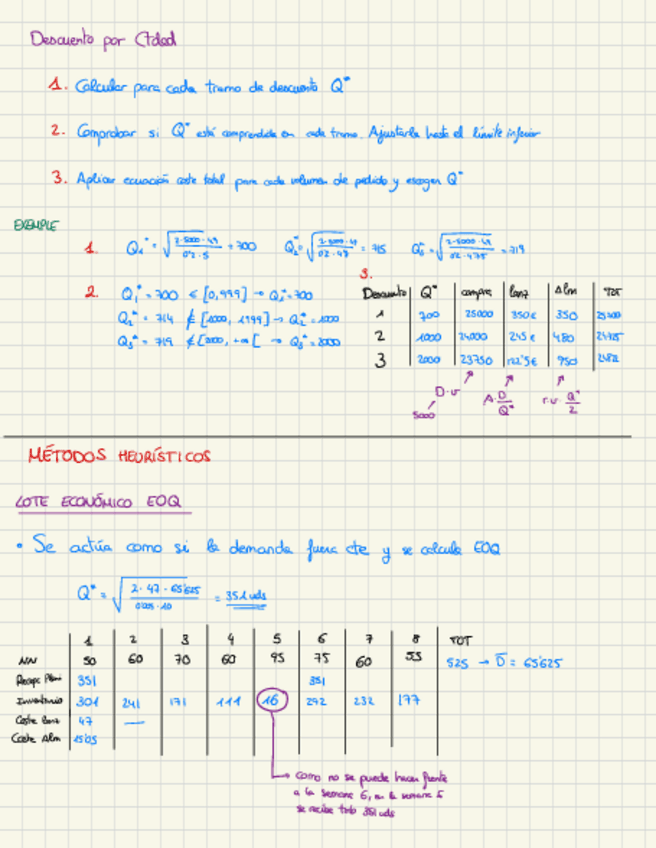 Descuento por Ctdad
1. Calcular para cada tramo de descuento Q*
2. Comprobar si Q* está comprendida en cada tramo. Ajustarla hasta el límite inferior
3. Aplicar ecuación coste total para cada volumen de pedido y escoger Q*
EXEMPLE
1. Q₁* = √(2·5000·49 / 0'2·5) = 700 = 715 = 719
3.
2. Q₁* = 700 ∈ [0,999] → Q₁* = 700
Q₂* = 714 ∉ [1000, 1999] → Q₂* = 1000
Q₃* = 719 ∉ [2000, +∞[ → Q₃* = 2000
Descuento Q* compra lanz Alm TOT
1 700 25000 350€ 350
2 1000 24000 245€ 480
3 2000 23750 122'5€ 950
D·v A·D/Q* r·v·Q*/2
5000
MÉTODOS HEURÍSTICOS
LOTE ECONÓMICO EOQ
• Se actúa como si la demanda fuera cte y se calcula EOQ
Q* = √(2·47·65'625 / 0'05·10) = 351 uds
1 2 3 4 5 6 7 8 TOT
NN 50 60 70 60 95 75 60 55 525 → D̄ = 65'625
Recepc Plani 351 351
Inventario 301 241 171 111 16 292 232 177
Coste lanz 47 —
Coste Alm 15'05
Como no se puede hacer frente
a la semana 6, en la semana
se recibe 351 uds